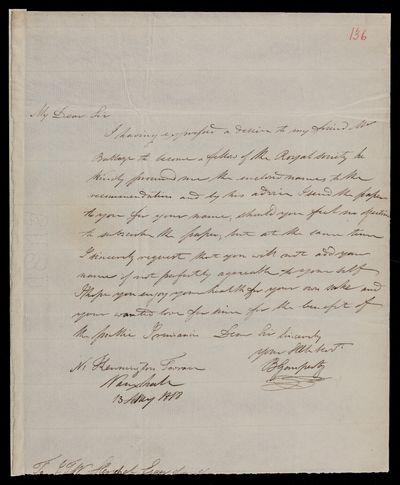 136
My Dear Sir
I having expressed a desire to my friend Mr
Babbage to become a fellow of the Royal Society he
kindly procured me the enclosed names to the
recommendation and by his advice I send the paper
to you for your name, should you feel no objection
to subscribe the paper, but at the same time
I sincerely request that you will not add your
name if not perfectly agreeable to your self
I hope you enjoy your health for your own sake and
your wanted love for science for the benefit of
the public I remain Dear Sir sincerely
your Obt
B Gompertz
No 1 Kennington Terrace
Vauxhall
13 May 1818
To J F W Herschel